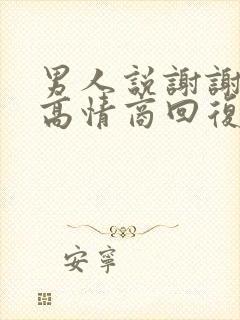 男人説謝謝
高情商回復
安寧